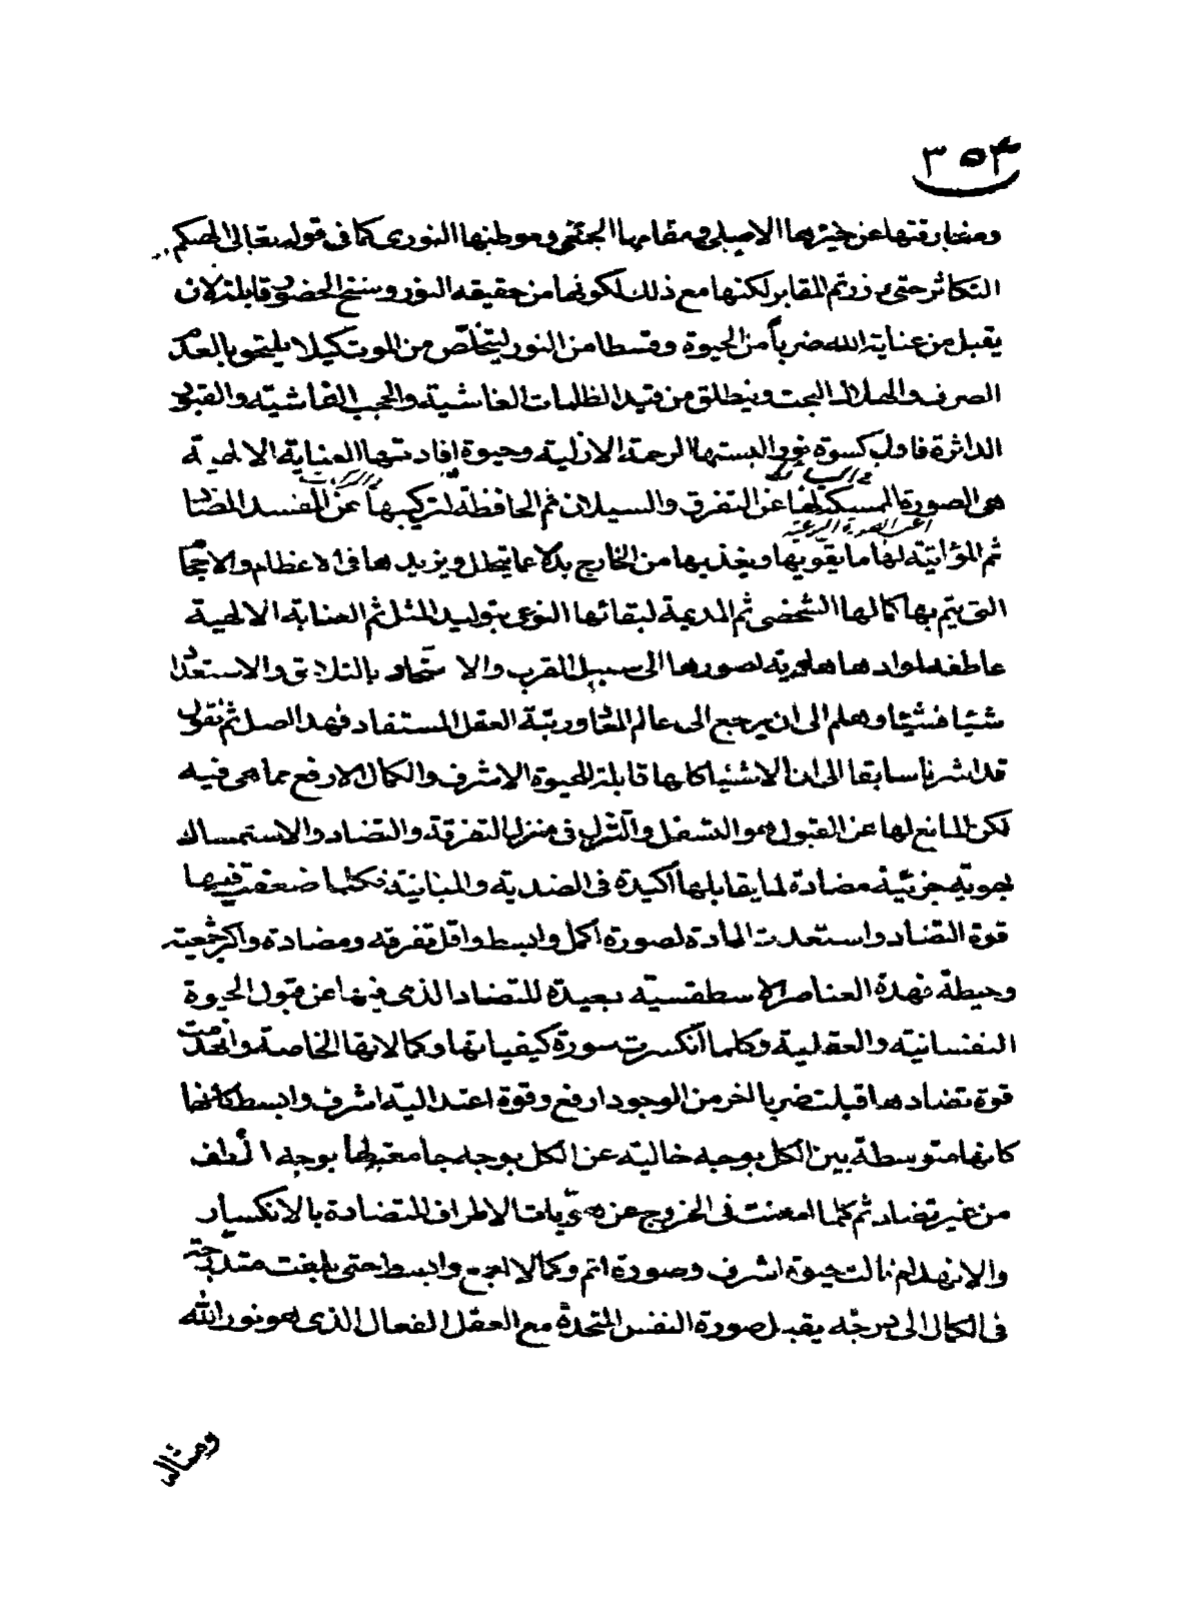 ٣٥٤
ومفارقتها عن حيزها الاصلي ومقامها الجمعي وموطنها النورى كما فى قوله تعالى الهيكم
التكاثر حتى زرتم المقابر لكنها مع ذلك لكونها من حقيقه النور وسنخ الحضور قابلة لان
يقبل من عناية الله ضرباً من الحيوة وقسطا من النور ليتخلّص من الموت كيلا يلتحق بالعدم
الصرف والهلاك البحت وينطلق من قيد الظلمات الغاشية والحجب الغاشيته والقبور
الداثرة فاول كسوة نور البستها الرحمة الازلية وحيوة افادتها العناية الالهية
هى الصورة الممسكة لها عن التفرق والسيلان ثم الحافظة لتركيبها عن المفسد المضاد
اعنى الصورة النوعية
ثم المؤاتية لها ما يقويها ويغذيها من الخارج بدلا عما يتحلل ويزيدها فى الاعظام والاحجام
التى يتم بها كمالها الشخضى ثم المديمة لبقائها النوعى بتوليد المثل ثم العناية الالهية
عاطفة لموادها هادية لصورها الى سبيل القرب والاتحاد بالتلاقى والاستعداد
شيئا فشيئا وهلم الى ان يرجع الى عالم المعاد ورتبة العقل المستفاد فهذا اصل ثم نقول
قد اشرنا سابقا الى ان الاشياء كلها قابلة للحيوة الاشرف والكمال الارفع مما هى فيه
لكن المانع لها عن القبول هو التسفل والتنزل فى منزل التفرقة والتضاد والاستمساك
بهوية جزئية مضادة لما يقابلها اكيدة فى الضدية والمباينة فكلما ضعفت فيها
قوة التضاد واستعدت المادة لصورة اكمل وابسط واقل تفرقه ومضادة واكثر جمعيته
وحيطة فهذه العناصر الاسطقسيّه بعيدة للتضاد الذى فيها عن قبول الحيوة
النفسانية والعقلية وكلما انكسرت سورة كيفياتها وكمالاتها الخاصة وانهدمت
قوة تضادها قبلت ضربا اخر من الوجود ارفع وقوة اعتدالية اشرف وابسط كانها
كانها متوسطة بين الكل بوجه خالية عن الكل بوجه جامعة لها بوجه الطف
من غير تضاد ثم كلما امعنت فى الخروج عن هويات الاطراف المتضادة بالانكسار
والانهدام نالت حيوة اشرف وصورة اتم وكمالا اجمع وابسط حتى بلغت متدرجة
فى الكمال الى درجة يقبل صورة النفس المتحدة مع العقل الفعال الذى هو نور الله
ومثال